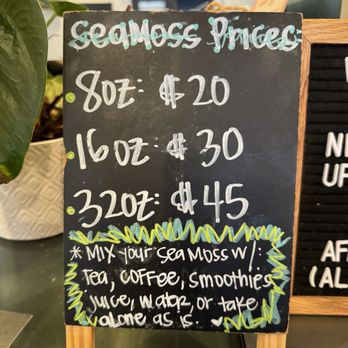 SeaMoss Prices:
8oz: $20
16oz: $30
32oz: $45
* Mix your Sea Moss w/:
Tea, Coffee, Smoothies
Juice, Water or take
alone as is.
NE
UP
AF
(AL